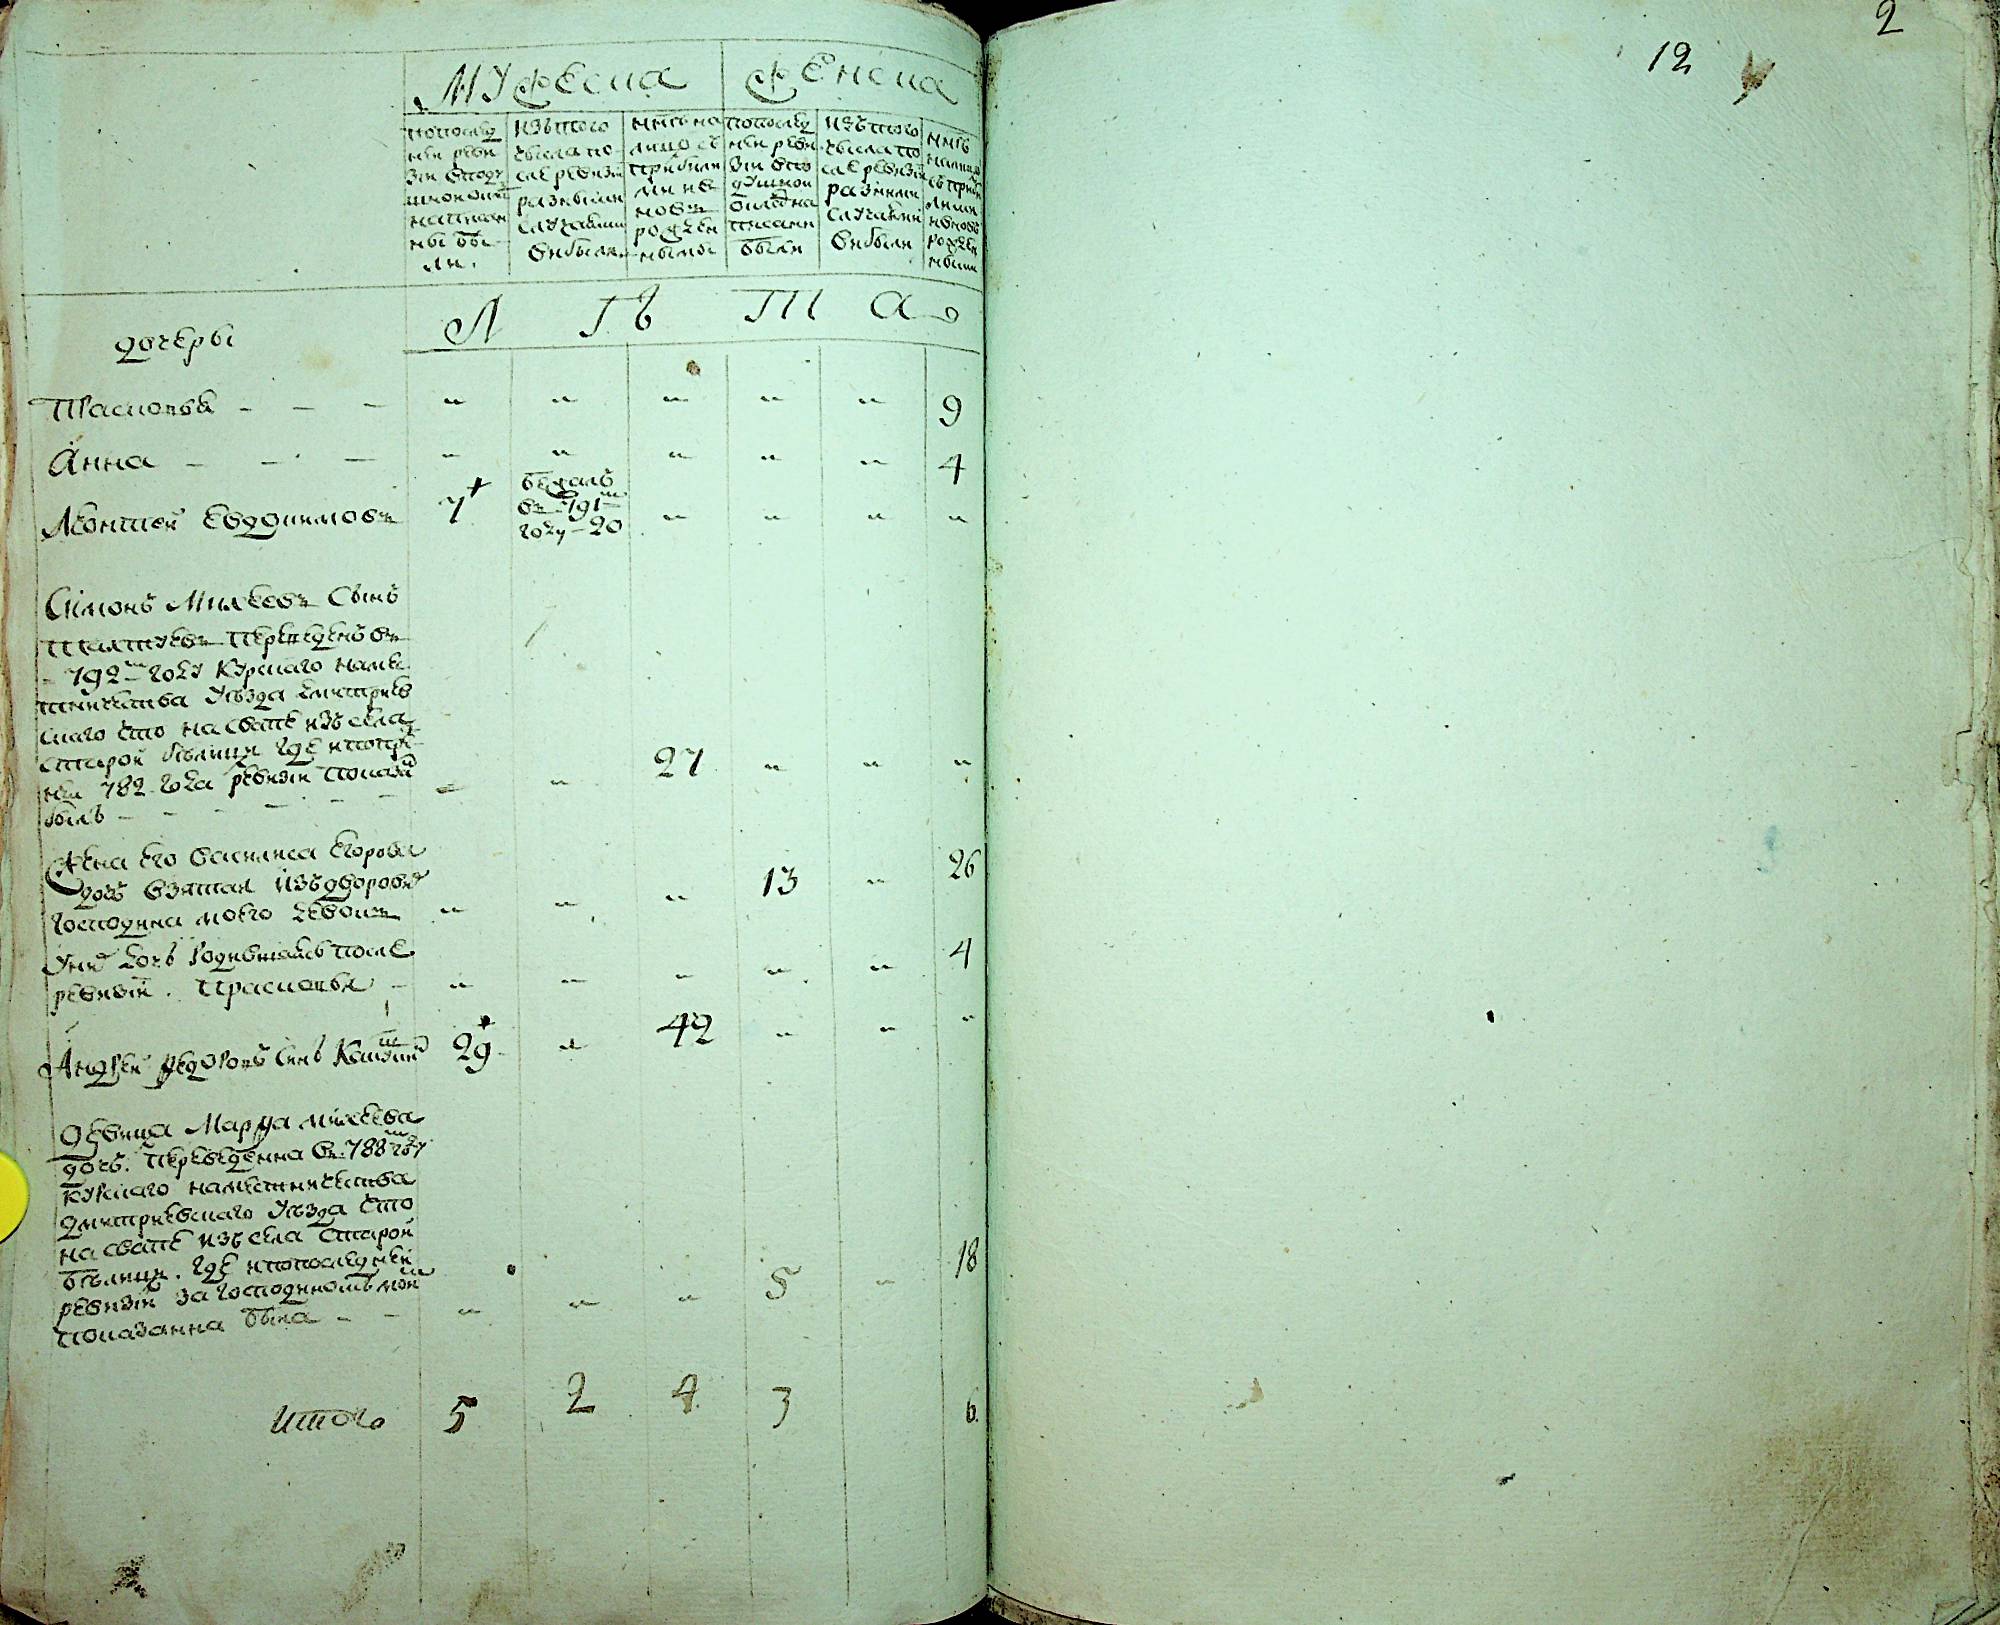 2
12
Мужеска
Женска
попослед
ней реви
зiи вподу
шномокла
написан
ны бы
ли.
Изътого
числа по
сле ревизiи
разными
случаями
выбыли
ныне на
лицо съ
прибыли
ми и в
новь
рожден
ными
попослед
ней реви
зiи въ
душной
окладъ на
писаны
были
изътого
числа по
сле ревизiи
разными
случаями
выбыли
ныне
налицо
съприб
лыми
ивновь
рожден
ными
Л ѣ т а
дочеры
Прасковья - - - " " " " " 9
Анна - - - " " " " " 4
Леонтей Евдокимовъ 7 бежалъ " " " "
въ 791м
году - 20
Симонъ Михеевъ Сынъ
переведенъ въ
- 792м году Курскаго наме
стничества уѣзда дмитриев
скаго что на свапе изъ села
старой белицы где и попре
ней 782 года ревизiи показа
былъ - - - - - " " 27 " " "
Жена его василиса егорова
дочь взятая изъ дворовыхъ
господина моего девокъ " " " 13 " 26
У них дочь родившаясь после
ревизiи . прасковья - " " " " " 4
Андрей Федоровъ Сынъ 29 " 42 " " "
Девица Марфа михеева
дочь. переведенна въ 788м году
курскаго наместничества
дмитриевскаго уѣзда что
на свапе изъ села старой
белицы . где и попоследней
ревизiи за господиномъ моим
показанна была - - " " " 5 " 18
Итого 5 2 4 3 6.